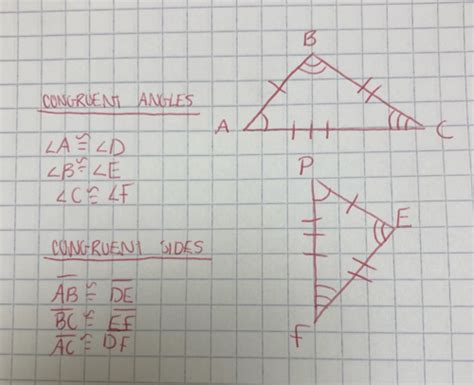 CONGRUENT ANGLES
∠A ≅ ∠D
∠B ≅ ∠E
∠C ≅ ∠F
CONGRUENT SIDES
AB ≅ DE
BC ≅ EF
AC ≅ DF
B
A
C
P
E
F